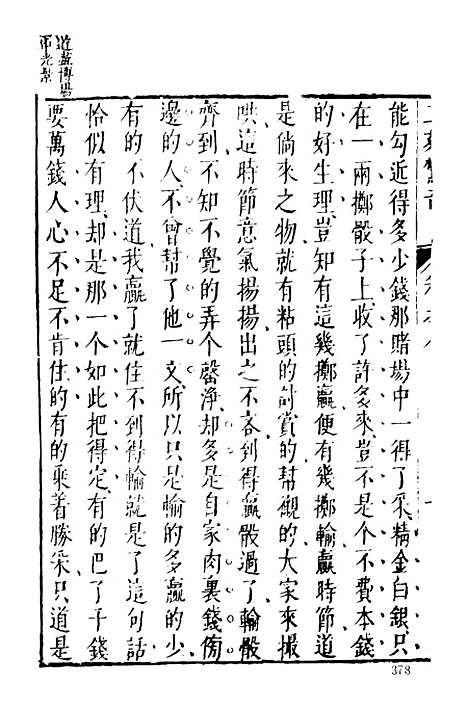 道盡博場
中光景
二刻驚奇
能勾近得多少錢那賭場中一得了采精金白銀只
在一兩擲骰子上收了許多來豈不是个不費本錢
的好生理豈知有這幾擲贏便有幾擲輸贏時節道
是倘來之物就有粘頭的討賞的幫襯的大家來撮
哄這時節意氣揚揚出之不吝到得贏骰過了輸骰
齊到不知不覺的弄个罄淨却多是自家肉裏錢傍
邊的人不曾幫了他一文所以只是輸的多贏的少
有的不伏道我贏了就住不到得輸就是了這句話
恰似有理却是那一个如此把得定有的巴了千錢
要萬錢人心不足不肯住的有的乘着勝采只道是
378